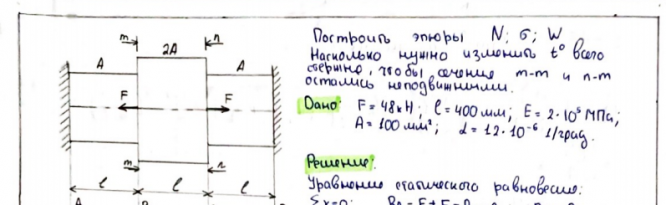 Построить эпюры N; σ; W
Насколько нужно изменить t° всего
стержня, чтобы сечения m-m и n-n
остались неподвижными.
Дано: F = 48кН; l = 400мм; E = 2·10⁵ МПа;
A = 100 мм²; α = 12·10⁻⁶ 1/град.
Решение:
Уравнение статического равновесие:
Σx=0;
m n
A 2A A
F F
m n
l l l